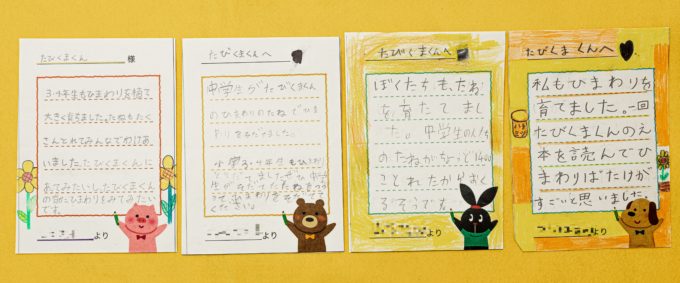 たびくまくん 様
3・4年生もひまわりを植て
大きく育ちました。たねもたく
さんとれてみんなでわけあ
いました。たびくまくんに
あてみたいしたびくまくん
の町にひまわりをみてみたい
です。
より
たびくまくんへ
中学生がたびくまくん
のひまわりのたねでひま
わりをそだてました。
小学3・4年生もひまわり
より
たびくまくんへ
ぼくたちも、たね
を育たてまし
た。中学生の人たち
のたねがちょっと1400
ことれたからおく
るそうです。
より
たびくまくんへ
私もひまわりを
育てました。一回
たびくまくんのえ
本を読んでひ
まわりばたけが
すごいと思いました。
より